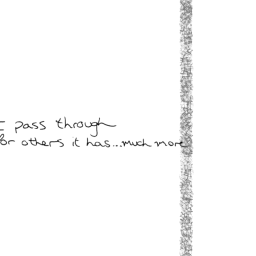 pass through
others it has...much more